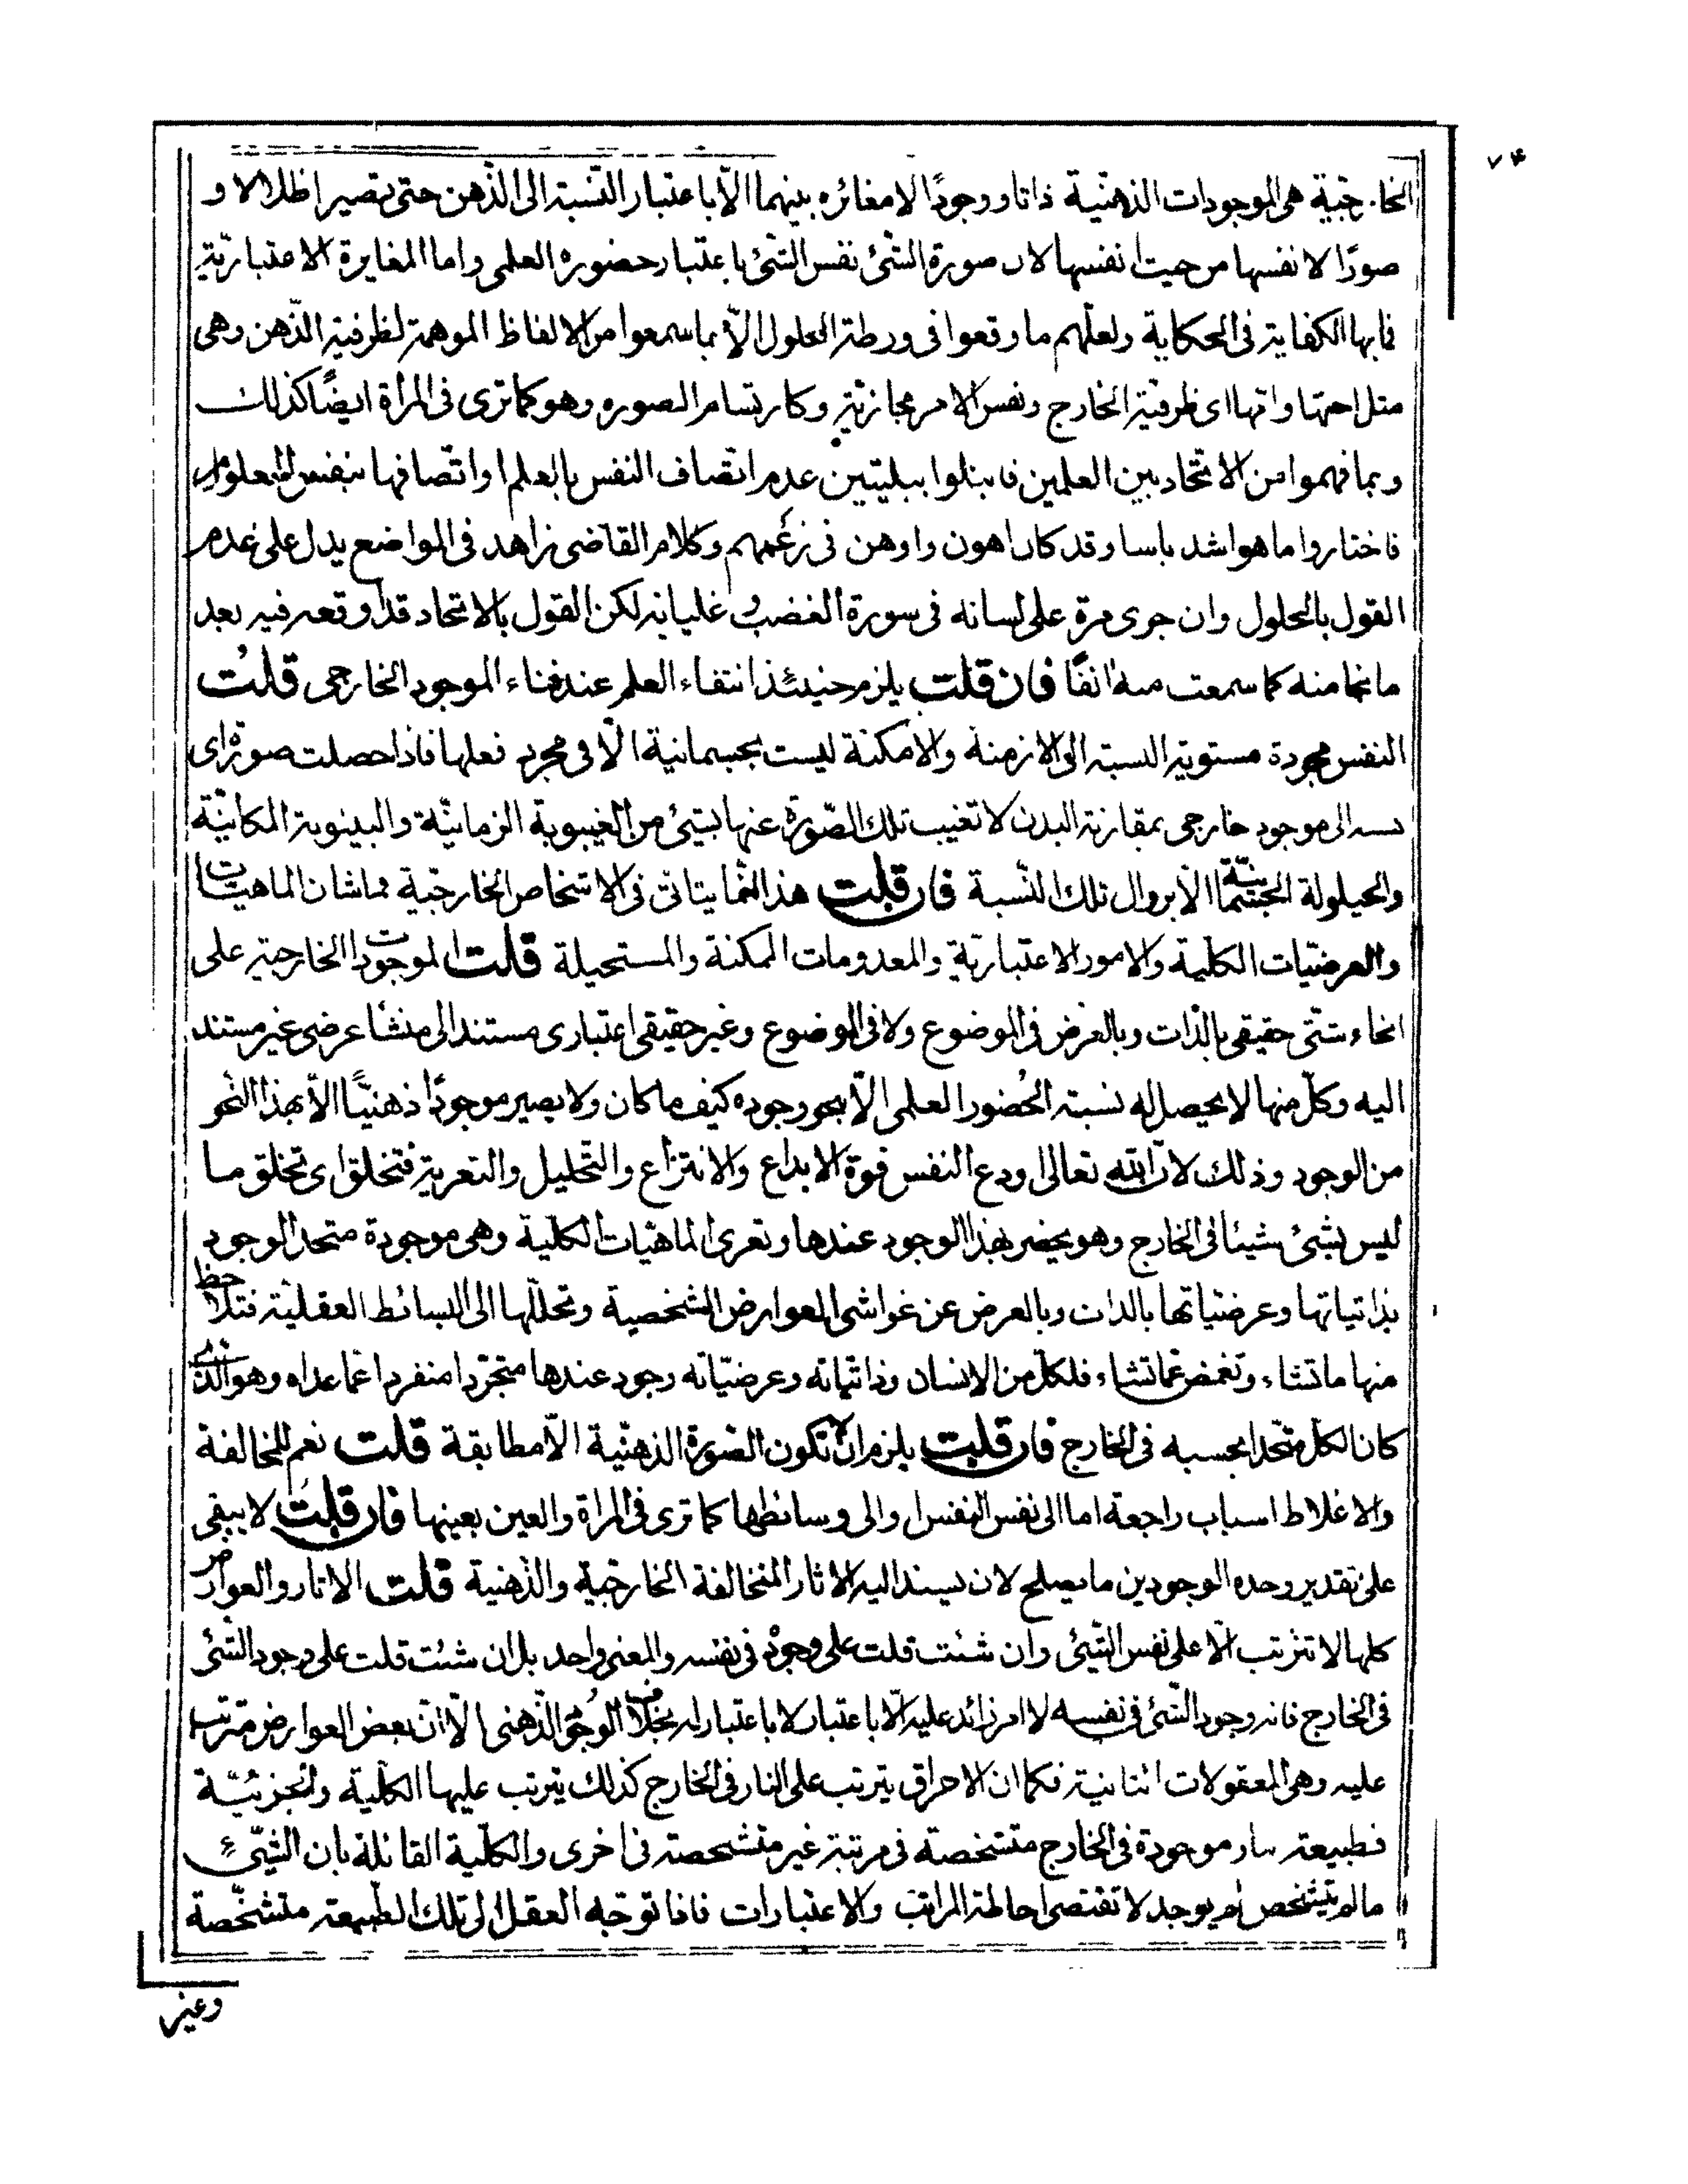 ٧۴
الخارجية هى الموجودات الذهنية ذاتا ووجودًا لا مغائره بينهما الّا باعتبار النسبة الى الذهن حتى تصير اظلالا و
صورًا لا نفسها من حيث انفسها لان صورة الشئ نفس الشئ باعتبار حضوره العلمى واما المغايرة الاعتبارية
فابها الكفاية فى الحكاية ولعلهم ما وقعوا فى ورطة الحلول الّا بما سمعوا من الالفاظ الموهمة لظرفية الذهن وهى
مثل اختها وانها اى ظرفية الخارج ونفس الامر مجازية وكارتسام الصوره وهو كما ترى فى المرأة ايضًا كذلك
وبما فهموا من الاتحاد بين العلمين فابتلوا ببليتين عدم اتصاف النفس بالعلم او اتصافها بنفس المعلوم
فاختاروا ما هو اشد باسا وقد كان اهون واوهن فى زعمهم وكلام القاضى زاهد فى المواضع يدل على عدم
القول بالحلول وان جرى مرة على لسانه فى سورة الغضب وغليانه لكن القول بالاتحاد قد اوقعه فيه بعد
ما نجا منه كما سمعت منه انفًا فان قلت يلزم حينئذ انتفاء العلم عند فناء الموجود الخارجى قلت
النفس مجردة مستوية النسبة الى الازمنة والامكنة ليست بجسمانية الّا فى مجرد فعلها فاذا حصلت صورة اى
نسبه الى موجود خارجى بمقارنة البدن لا تغيب تلك الصورة عنها بشئ من الغيبوبة الزمانية والبينونة المكانية
والحيلولة الجسمانية الا بزوال تلك النسبة فان قلت هذا انما يتاتى فى الاشخاص الخارجية فما شان الماهيات
والعرضيات الكلية والامور الاعتبارية والمعدومات الممكنة والمستحيلة قلت الموجودات الخارجية على
انحاء شتى حقيقى بالذات وبالعرض فى الموضوع ولا فى الموضوع وغير حقيقى اعتبارى مستند الى منشأ عرضى غير مستند
اليه وكل منها لا يحصل له نسبة الحضور العلمى الّا بنحو وجوده كيف ما كان ولا يصير موجودًا ذهنيًا الّا بهذا النحو
من الوجود وذلك لان الله تعالى اودع النفس قوة الابداع والانتزاع والتحليل والتعرية فتخلق اى تخلق ما
ليس بشئ شيئا فى الخارج وهو يحضر بهذا الوجود عندها وتعرى الماهيات الكلية وهى موجودة متحد الوجود
بذاتياتها وعرضياتها بالذات وبالعرض عن غواشى العوارض الشخصية وتحللها الى البسائط العقلية فتلاحظ
منها ما تشاء وتغمض عما تشاء فلكل من الانسان وذاتياته وعرضياته وجود عندها متجردا منفردا عما عداه وهو الذى
كان الكل متحدا بحسبه فى الخارج فان قلت يلزم ان لا تكون الصورة الذهنية الّا مطابقة قلت نعم للمخالفة
والاغلاط اسباب راجعة اما الى نفس النفس او الى وسائطها كما ترى فى المراة والعين بعينها فان قلت لا يبقى
على تقدير وحده الوجودين ما يصلح لان يسند اليه الاثار المتخالفة الخارجية والذهنية قلت الاثار والعوارض
كلها لا تترتب الّا على نفس الشئ وان شئت قلت على وجوده فى نفسه والمعنى واحد بل ان شئت قلت على وجود الشئ
فى الخارج فانه وجود الشئ فى نفسه لا امر زائد عليه الا باعتبار لا باعتبار له بخلاف الوجود الذهنى الّا ان بعض العوارض مترتب
عليه وهى المعقولات الثانية فكما ان الاحراق يترتب على النار فى الخارج كذلك يترتب عليها الكلية والجزئية
فطبيعة النار موجودة فى الخارج متشخصة فى مرتبة غير متشخصة فى اخرى والكلية القائلة بان الشئ
ما لم يتشخص لم يوجد لا تقتضى احاطة المراتب والاعتبارات فاذا توجه العقل الى تلك الطبيعة متشخصة
وغير